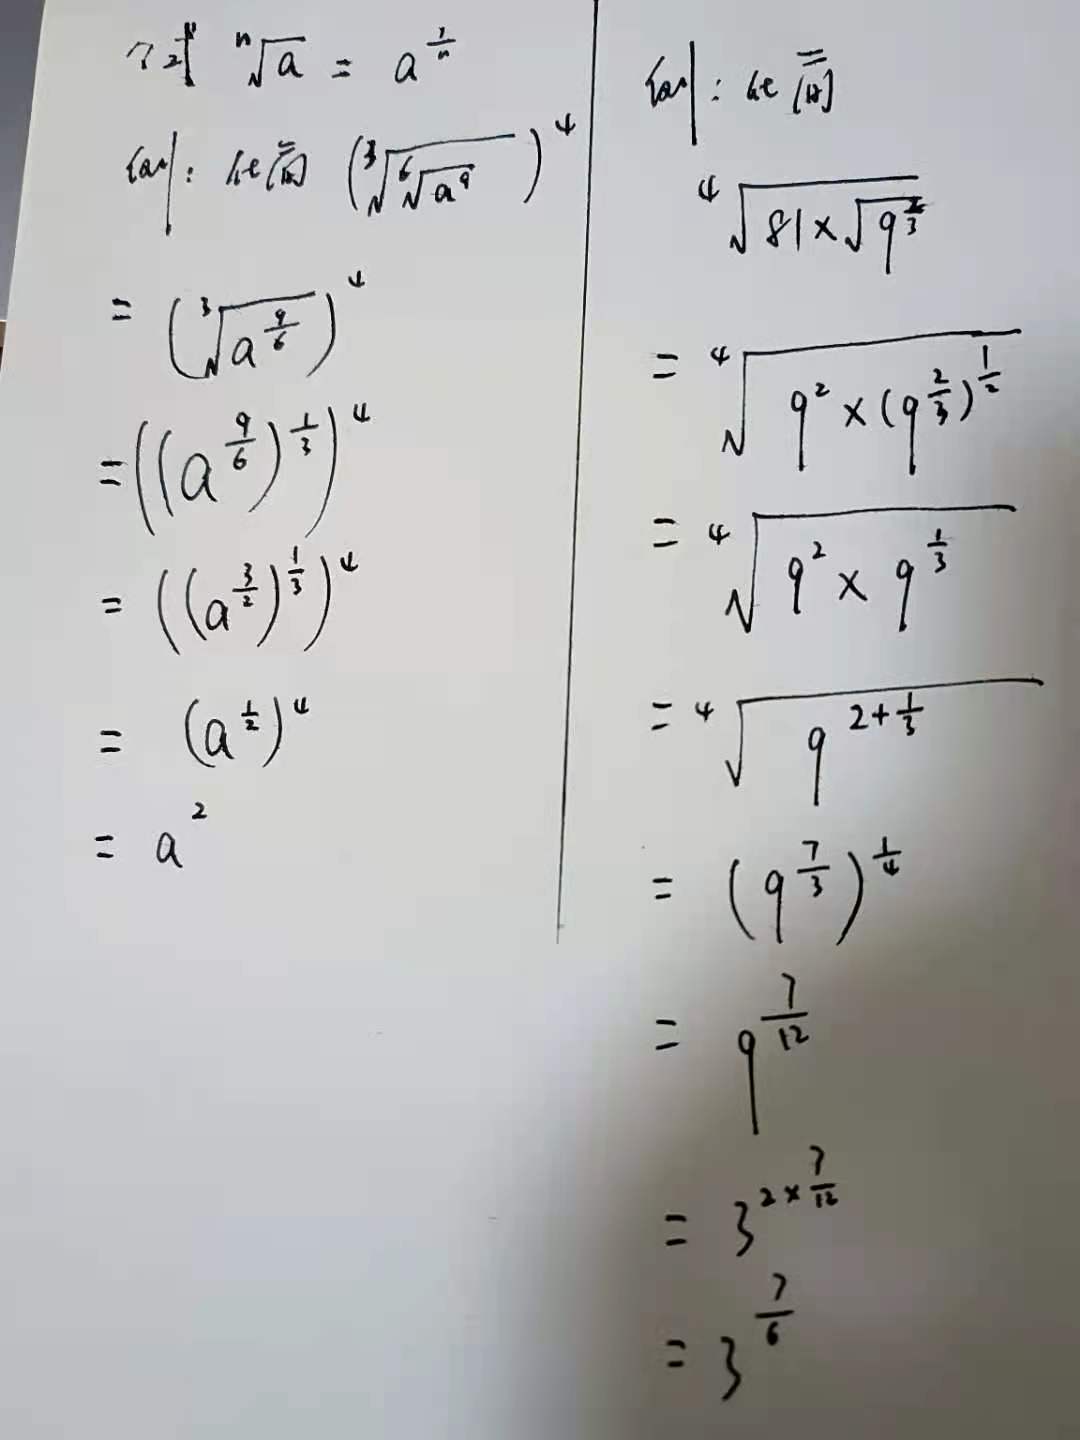 公式 ⁿ√a = a^(1/n)
例: 化简 (³√(⁶√(a⁹)))⁴
= (³√(a^(9/6)))⁴
= ((a^(9/6))^(1/3))⁴
= ((a^(3/2))^(1/3))⁴
= (a^(1/2))⁴
= a²
例: 化简
⁴√(81×√(9^(2/3)))
= ⁴√(9²×(9^(2/3))^(1/2))
= ⁴√(9²×9^(1/3))
= ⁴√(9^(2+1/3))
= (9^(7/3))^(1/4)
= 9^(7/12)
= 3^(2×7/12)
= 3^(7/6)